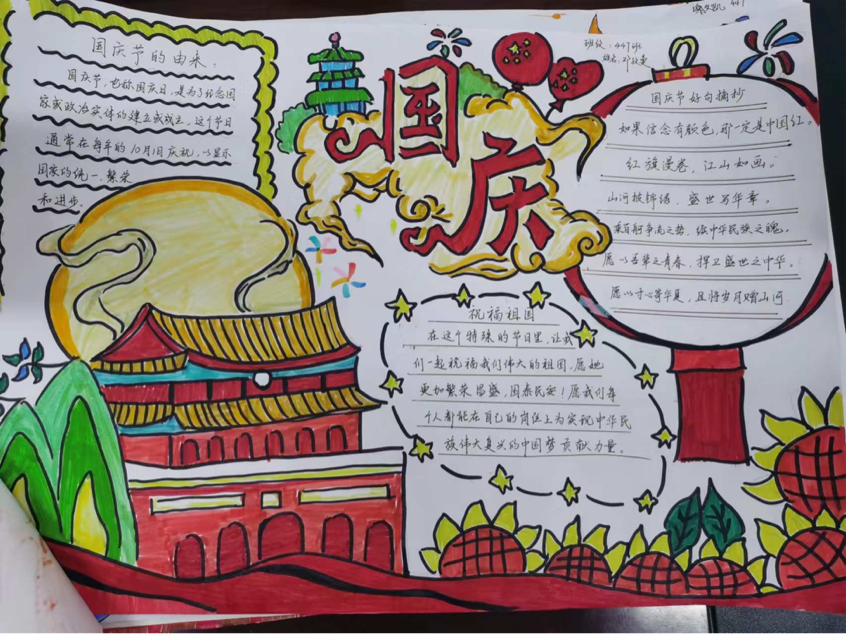 国庆节的由来:
国庆节，也称国庆日，是为了纪念国
家或政治实体的建立或成立，这个节日
通常在每年的10月1日庆祝，以显示
国家的统一、繁荣
和进步.
国庆
班级:447班
姓名:
447
国庆节好句摘抄
如果信念有颜色，那一定是中国红。
红旗漫卷，江山如画。
山河披锦绣，盛世写华章。
乘百舸争流之势，绘中华民族之魂。
愿以吾辈之青春，捍卫盛世之中华。
愿以寸心寄华夏，且将岁月赠山河
祝福祖国
在这个特殊的节日里，让我
们一起祝福我们伟大的祖国，愿她
更加繁荣昌盛，国泰民安！愿我们每
个人都能在自己的岗位上为实现中华民
族伟大复兴的中国梦贡献力量。